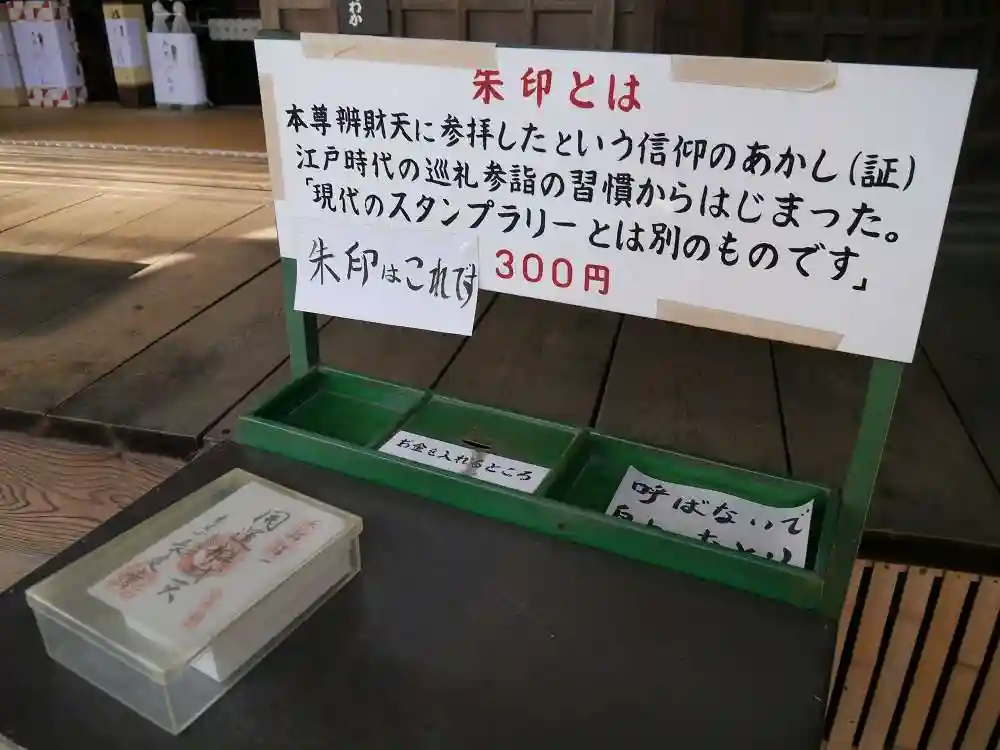 わか
朱印とは
本尊辨財天に参拝したという信仰のあかし(証)
江戸時代の巡礼参詣の習慣からはじまった。
「現代のスタンプラリーとは別のものです」
朱印はこれです
300円
お金を入れるところ
呼ばないで
開運
天